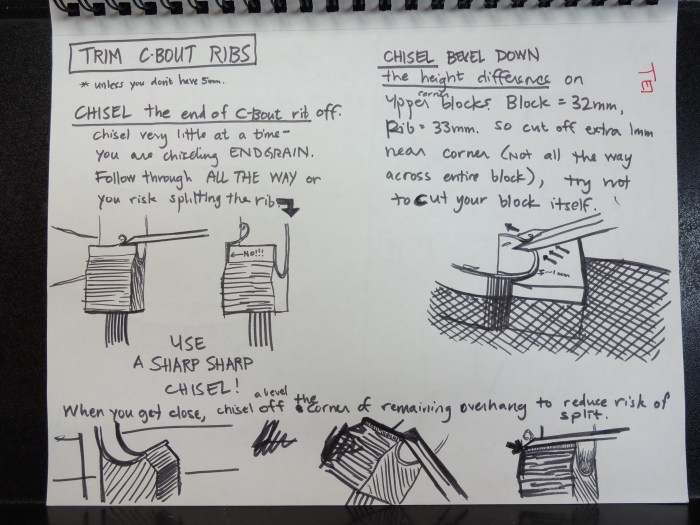 TRIM C-BOUT RIBS
* unless you don't have 5mm.
CHISEL the end of C-Bout rib off.
chisel very little at a time -
you are chiseling ENDGRAIN.
Follow through ALL THE WAY or
you risk splitting the rib.
←NO!!!
USE
A SHARP SHARP
CHISEL!
CHISEL BEVEL DOWN
the height difference on
corner
Upper blocks Block = 32mm,
Rib = 33mm. so cut off extra 1mm
near corner (Not all the way
across entire block), try not
to cut your block itself.
1mm
a bevel
When you get close, chisel off the corner of remaining overhang to reduce risk of
split.